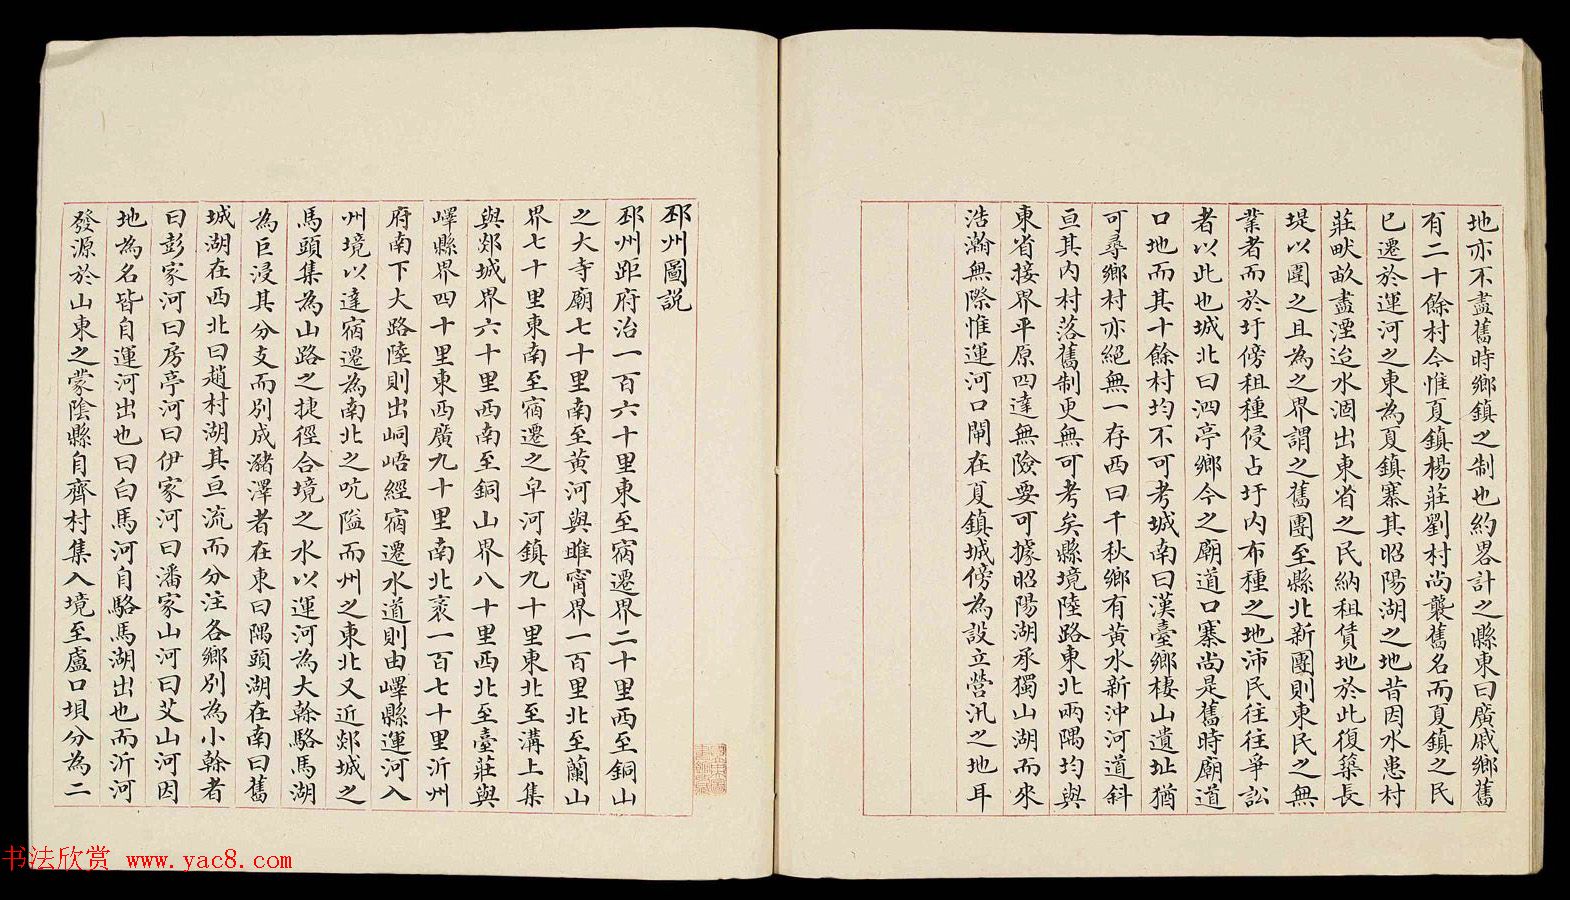 地亦不盡舊時鄉鎮之制也約畧計之縣東曰廣戚鄉舊
有二十餘村今惟夏鎮楊莊劉村尚襲舊名而夏鎮之民
已遷於運河之東為夏鎮寨其昭陽湖之地昔因水患村
莊畎畝盡湮迨水涸出東省之民納租賃地於此復築長
堤以圍之且為之界謂之舊團至縣北新團則東民之無
業者而於圩傍租種侵占圩内布種之地沛民往往爭訟
者以此也城北曰泗亭鄉今之廟道口寨尚是舊時廟道
口地而其十餘村均不可考城南曰漢臺鄉棲山遺址猶
可尋鄉村亦絕無一存西曰千秋鄉有黃水新沖河道斜
亘其内村落舊制更無可考矣縣境陸路東北兩隅均與
東省接界平原四達無險要可據昭陽湖承獨山湖而來
浩瀚無際惟運河口閘在夏鎮城傍為設立營汛之地耳
邳州圖說
邳州距府治一百六十里東至宿遷界二十里西至銅山
之大寺廟七十里南至黃河與睢甯界一百里北至蘭山
界七十里東南至宿遷之皁河鎮九十里東北至溝上集
與郯城界六十里西南至銅山界八十里西北至臺莊與
嶧縣界四十里東西廣九十里南北袤一百七十里沂州
府南下大路陸則出峒峿經宿遷水道則由嶧縣運河入
州境以達宿遷為南北之吭隘而州之東北又近郯城之
馬頭集為山路之捷徑合境之水以運河為大榦駱馬湖
為巨浸其分支而別成瀦澤者在東曰隅頭湖在南曰舊
城湖在西北曰趙村湖其亘流而分注各鄉別為小榦者
曰彭家河曰房亭河曰伊家河曰潘家山河曰艾山河因
地為名皆自運河出也曰白馬河自駱馬湖出也而沂河
發源於山東之蒙陰縣自齊村集入境至盧口垻分為二
书法欣赏 www.yac8.com